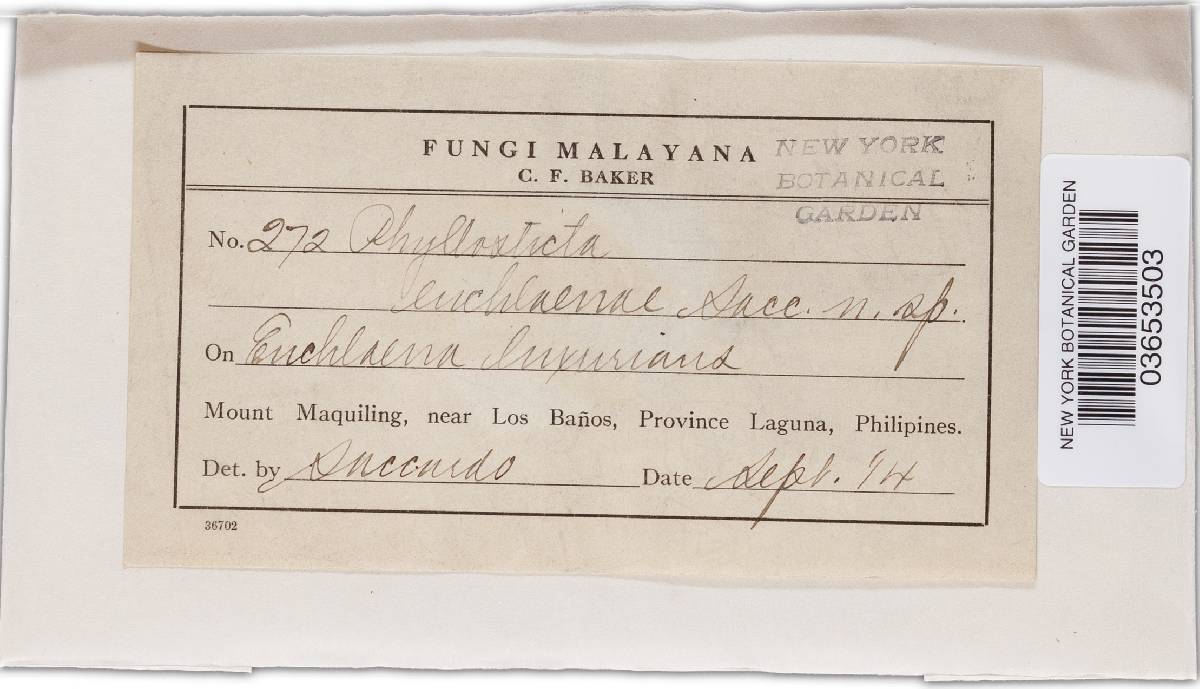 FUNGI MALAYANA
C. F. BAKER
NEW YORK
BOTANICAL
GARDEN
No. 272 Phyllosticta
euchlaenae Sacc. n. sp.
On Euchlaena luxurians
Mount Maquiling, near Los Baños, Province Laguna, Philipines.
Det. by Saccardo Date Sept. '14
36702
NEW YORK BOTANICAL GARDEN
03653503